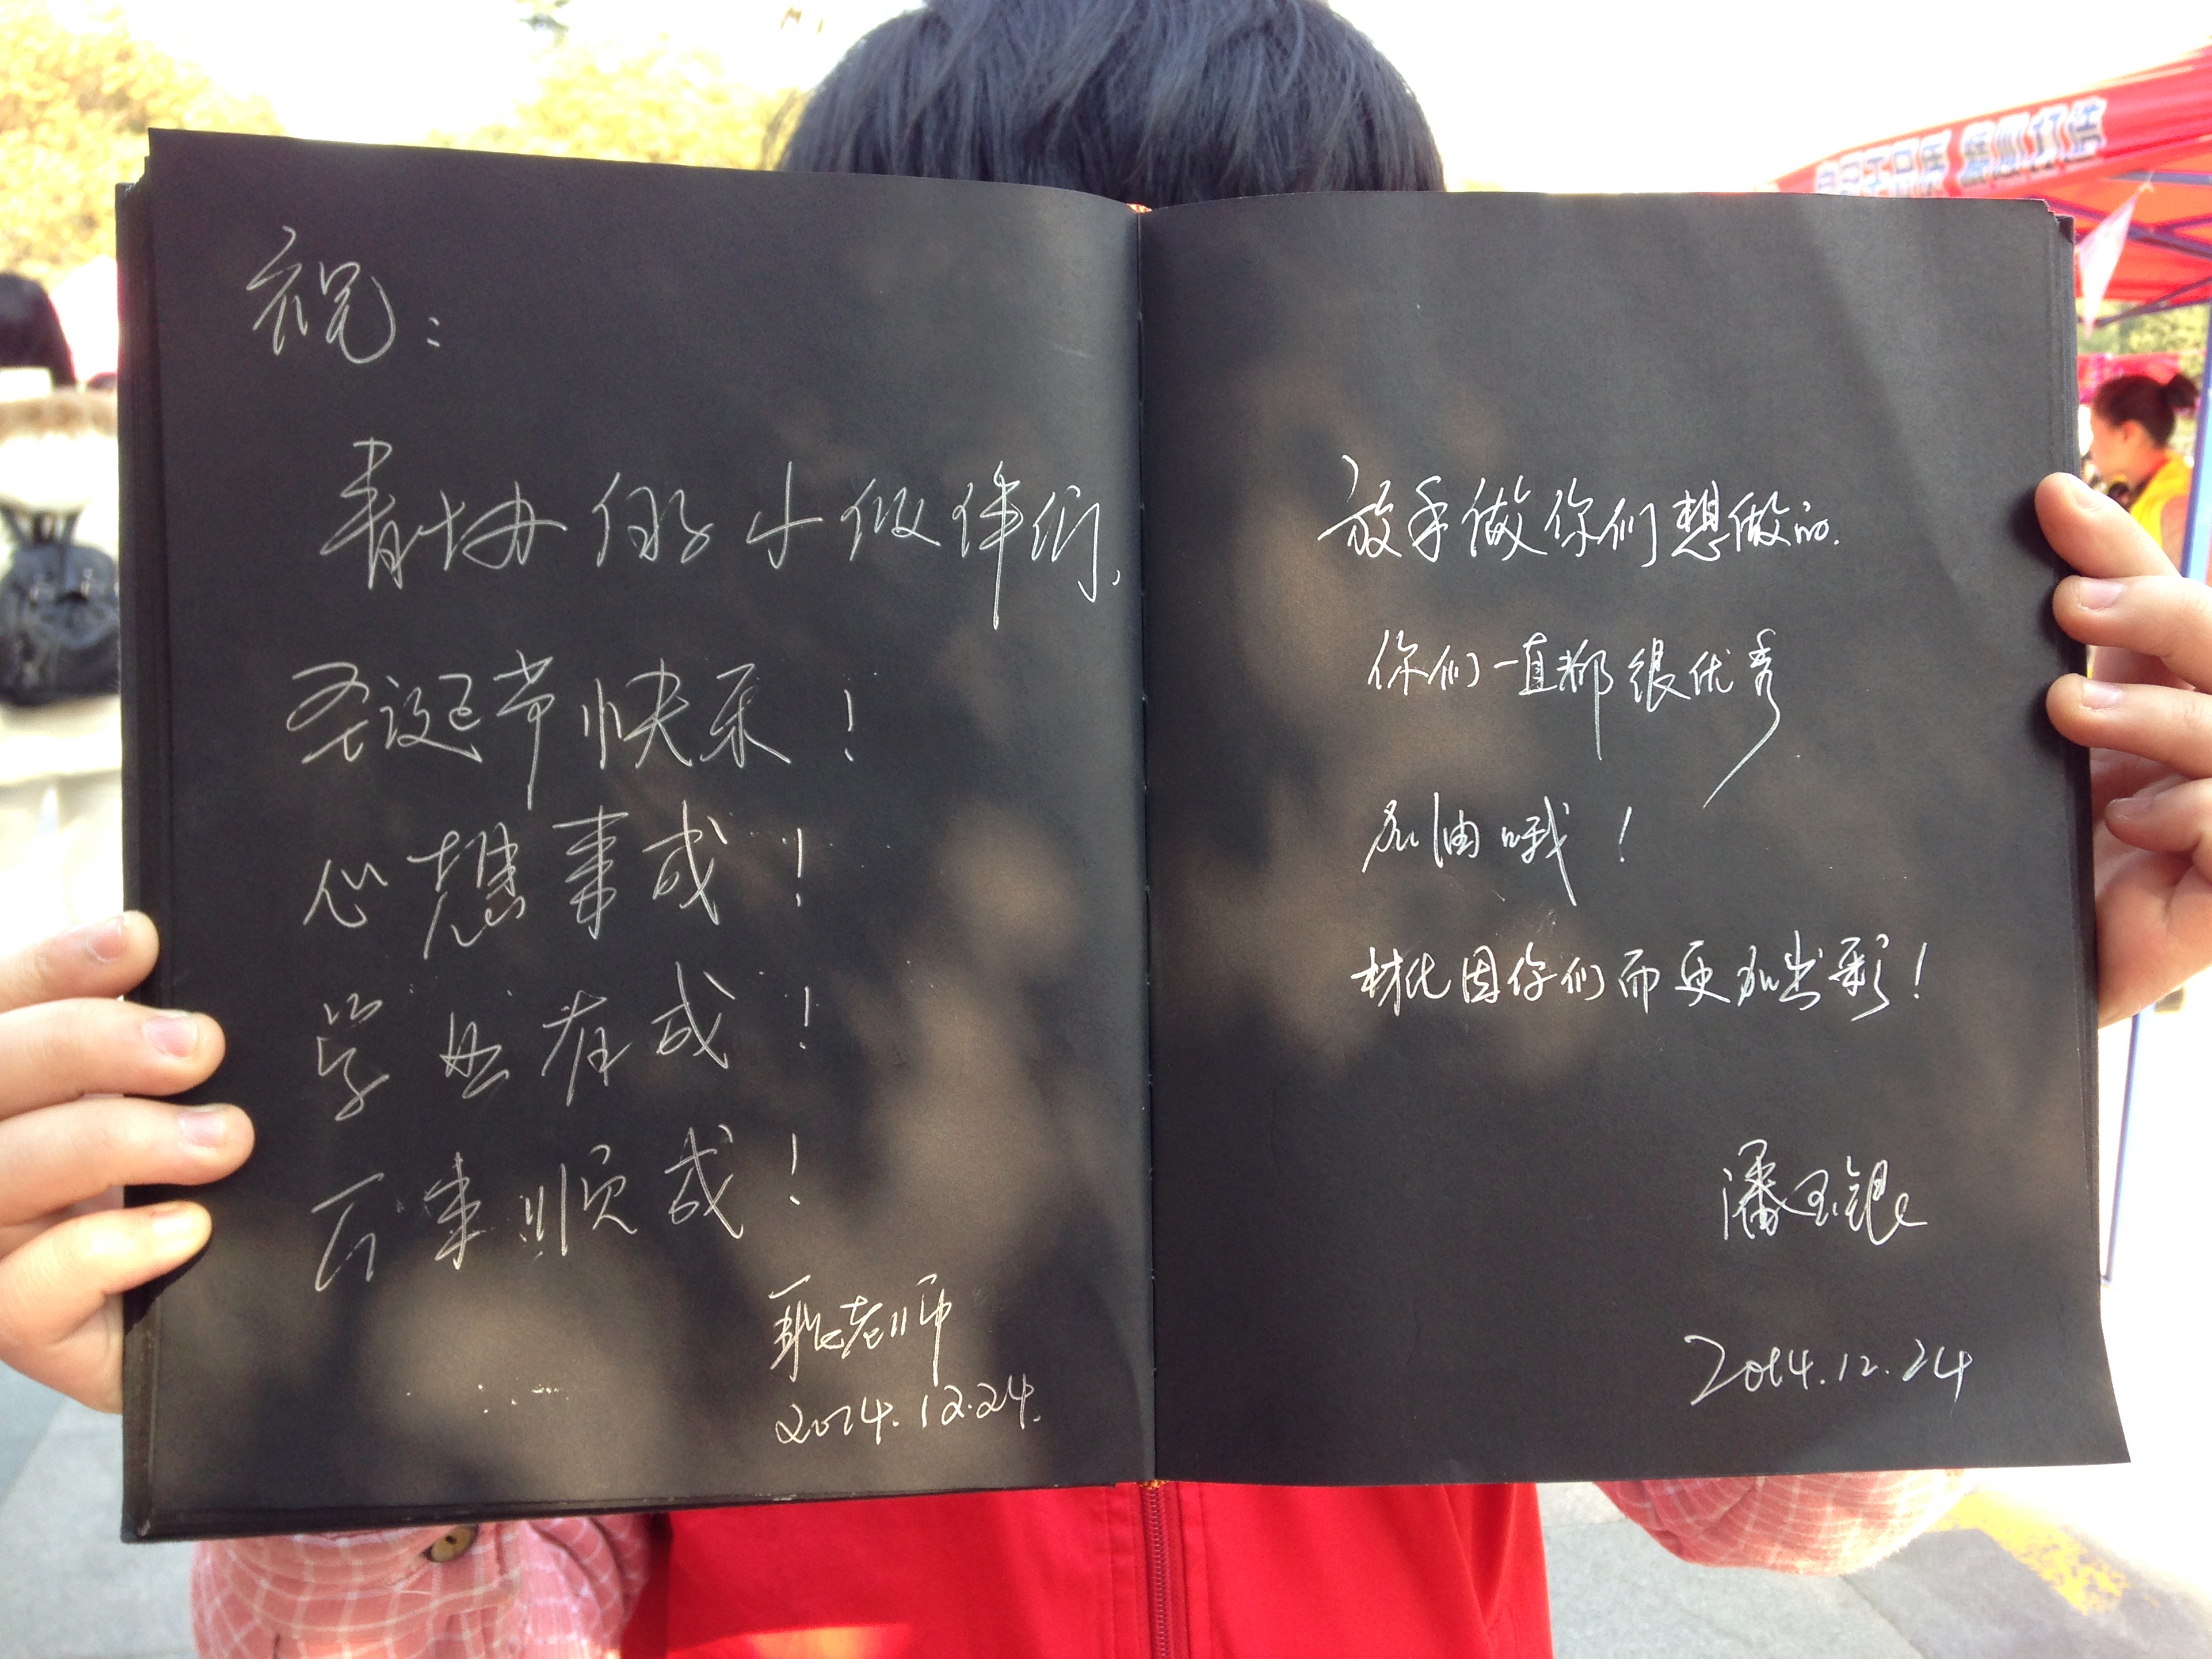 祝：
青协的小伙伴们，
圣诞节快乐！
心想事成！
学业有成！
万事顺成！
老师
2014.12.24.
放手做你们想做的.
你们一直都很优秀
加油哦！
材化因你们而更加出彩！
潘玉银
2014.12.24